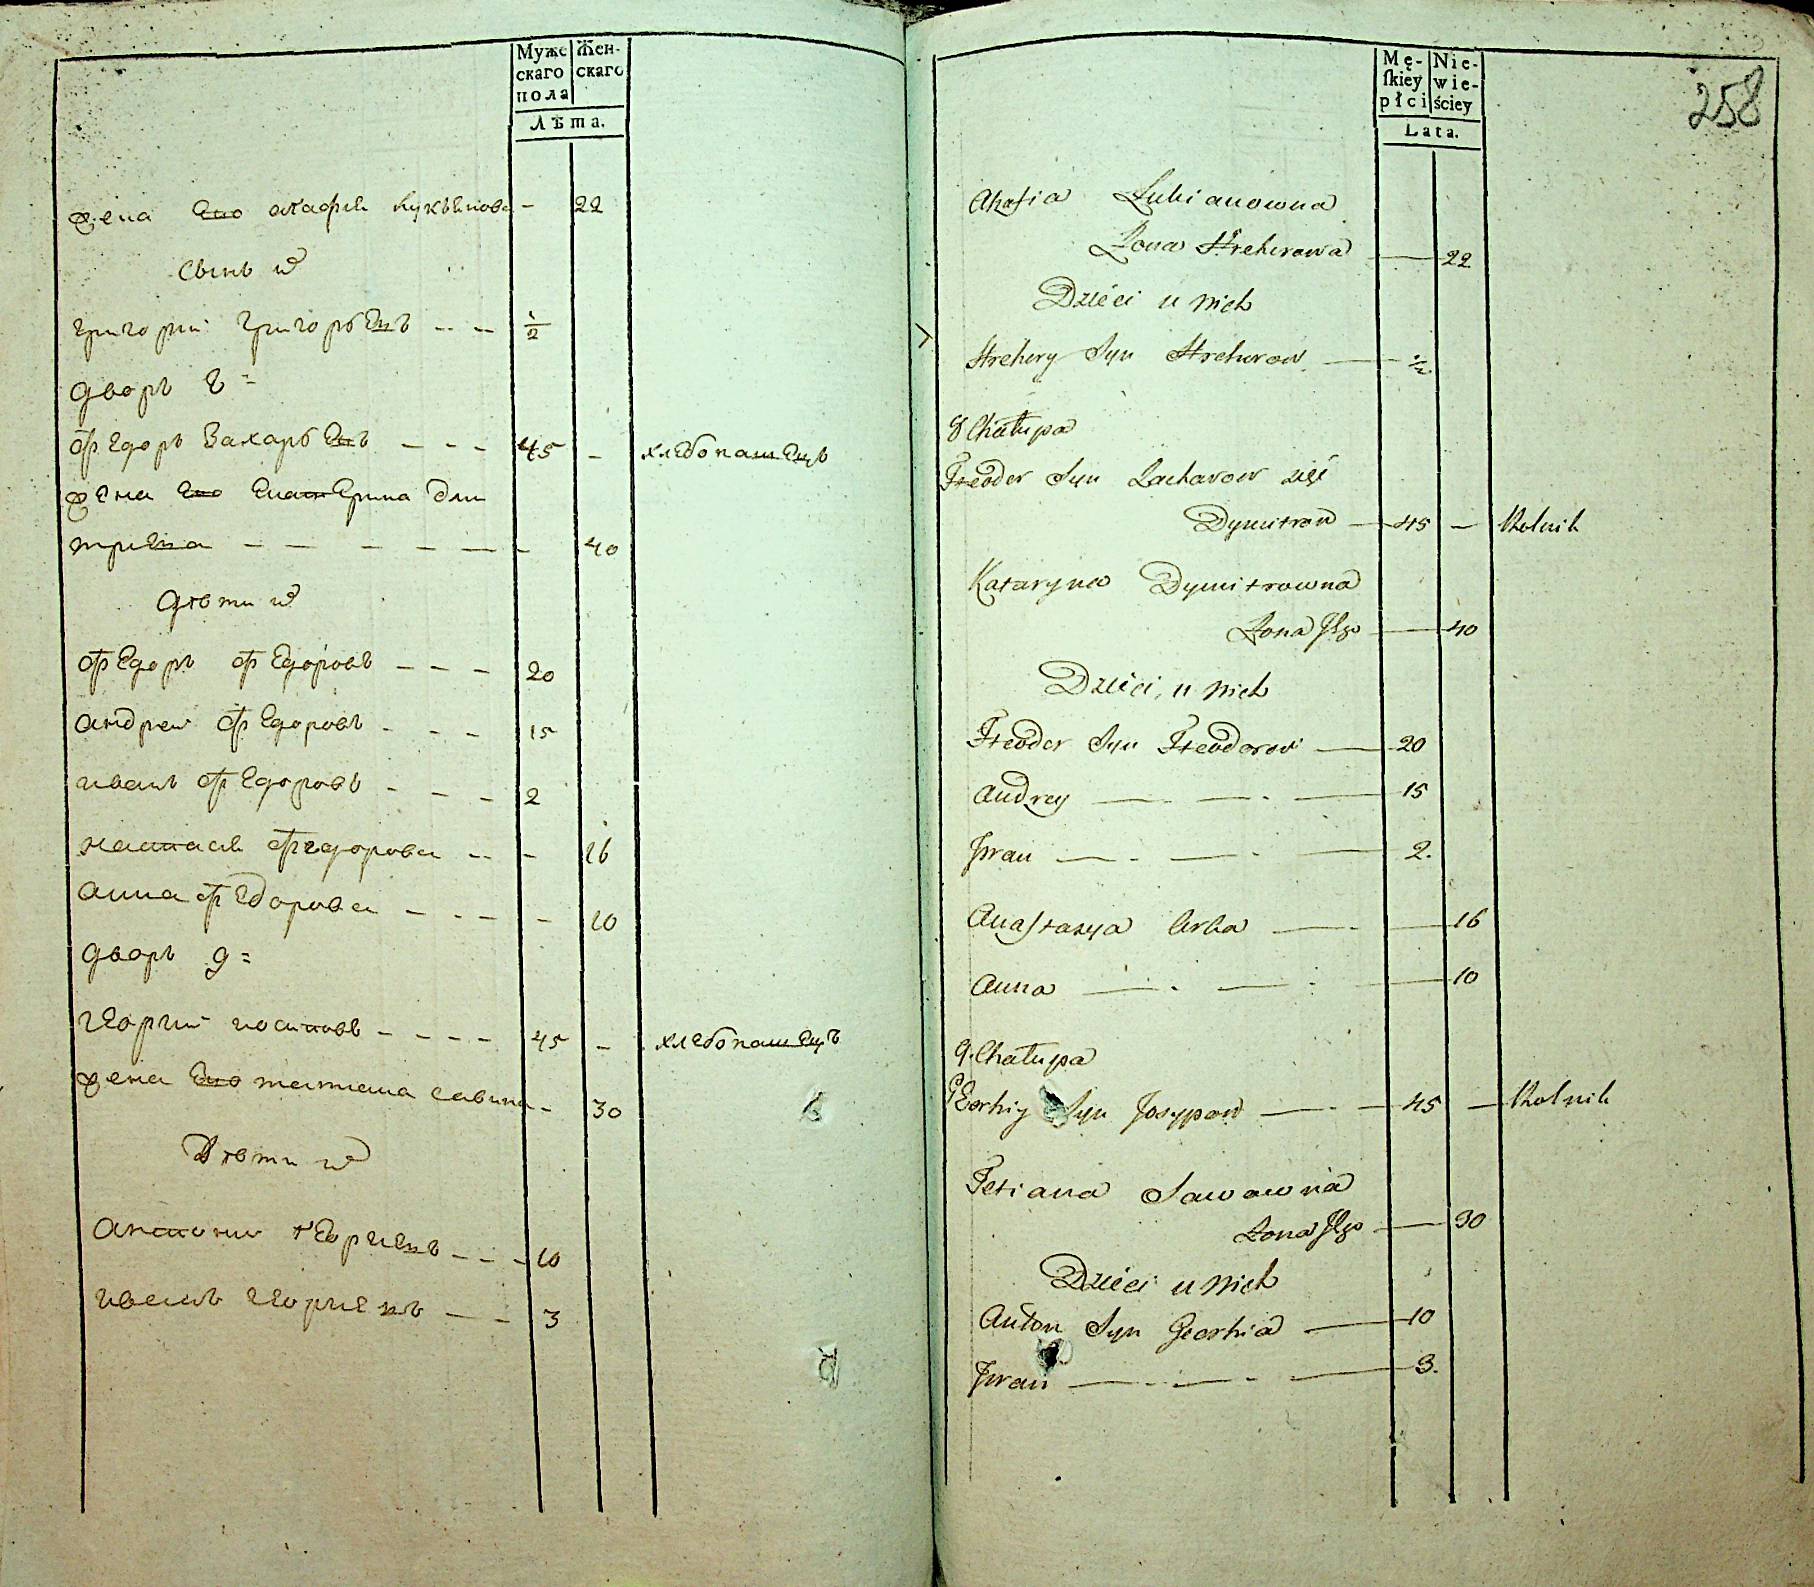 Муже
скаго
пола
Жен-
скаго
Лѣта.
жена его агафия лукьянова - 22
Сынъ их
григорий григорьевъ - - - ½
дворъ 8 =
федоръ Захарьевъ - - - 45 - хлебопашецъ
жена его Екатерина дми
триева - - - - - - 40
дѣти их
федоръ федоровъ - - - 20
андрей федоровъ - - - 15
иванъ федоровъ - - - 2
настасия федорова - - - 16
анна федорова - - - - 10
дворъ 9 =
георгий иосиповъ - - - - 45 - хлебопашецъ
жена его татиана савина - 30
Дѣти их
антоний георгиевъ - - - 10
иванъ георгиевъ - - 3
258
Mę-
ſkiey
płci
Nie-
wie-
ściey
Lata.
Ahafia Lukianowna
Zona Hrehorowa — 22
Dzieci u nich
Hrehory Syn Hrehorow — ½
8 Chałupa
Fteodor Syn Zacharow zięć
Dymitrow — 45 — Rolnik
Kataryna Dymitrowna
Zona Jego — 40
Dzieci u nich
Fteodor Syn Fteodorow — 20
Andrey — - — - — 15
Iwan — - — - — 2.
Anastazya Corka — - — 16
Anna — - — : — 10
9. Chałupa
Georhiy Syn Josypow — - — 45 — Rolnik
Tetiana Sawowna
Zona Jego — 30
Dzieci u nich
Anton Syn Georhia — 10
Iwan — - — - — 3.